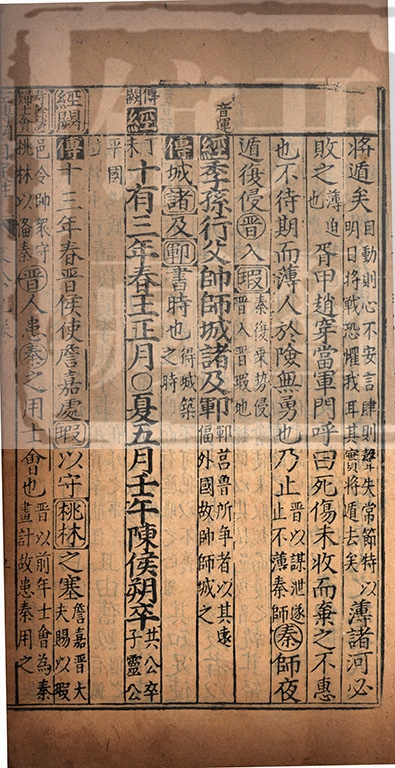 將遁矣目動則心不安言肆則聲失常節特以明日將戰恐懼我耳其實將遁去矣薄諸河必
敗之薄迫也胥甲趙穿當軍門呼曰死傷未收而棄之不惠
也不待期而薄人於險無勇也乃止晉以謀泄遂止不薄秦師秦師夜
遁復侵晉入瑕秦復乘勢侵晉入晉瑕地
音運
經季孫行父帥師城諸及鄆鄆莒魯所爭者以其遠偪外國故帥師城之
傳城諸及鄆書時也得城築之時
傳闕
經丁未十有三年春王正月〇夏五月壬午陳侯朔卒共公卒子靈公
平國
經闕
傳十三年春晉侯使詹嘉處瑕以守桃林之塞詹嘉晉大夫賜以瑕
邑令帥眾守桃林以備秦晉人患秦之用士會也晉以前年士會為秦畫計故患秦用之